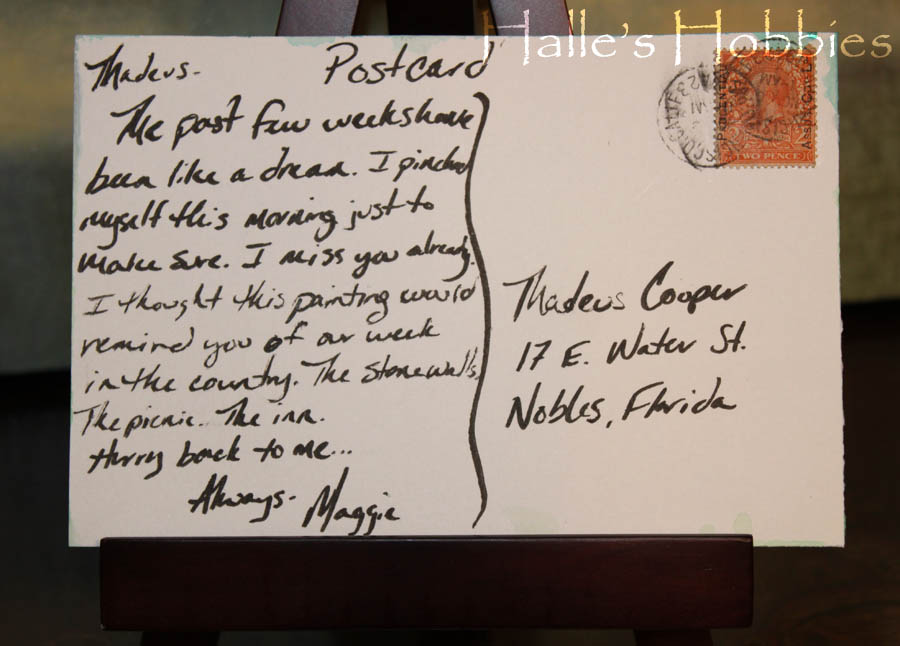 Halle's Hobbies
Postcard
Thadeus.
The past few weeks have
been like a dream. I pinched
myself this morning just to
make sure. I miss you already.
I thought this painting would
remind you of our week
in the country. The stone walls.
The picnic. The inn.
Hurry back to me...
Always.
Maggie
TWO PENCE
Thadeus Cooper
17 E. Water St.
Nobles, Florida